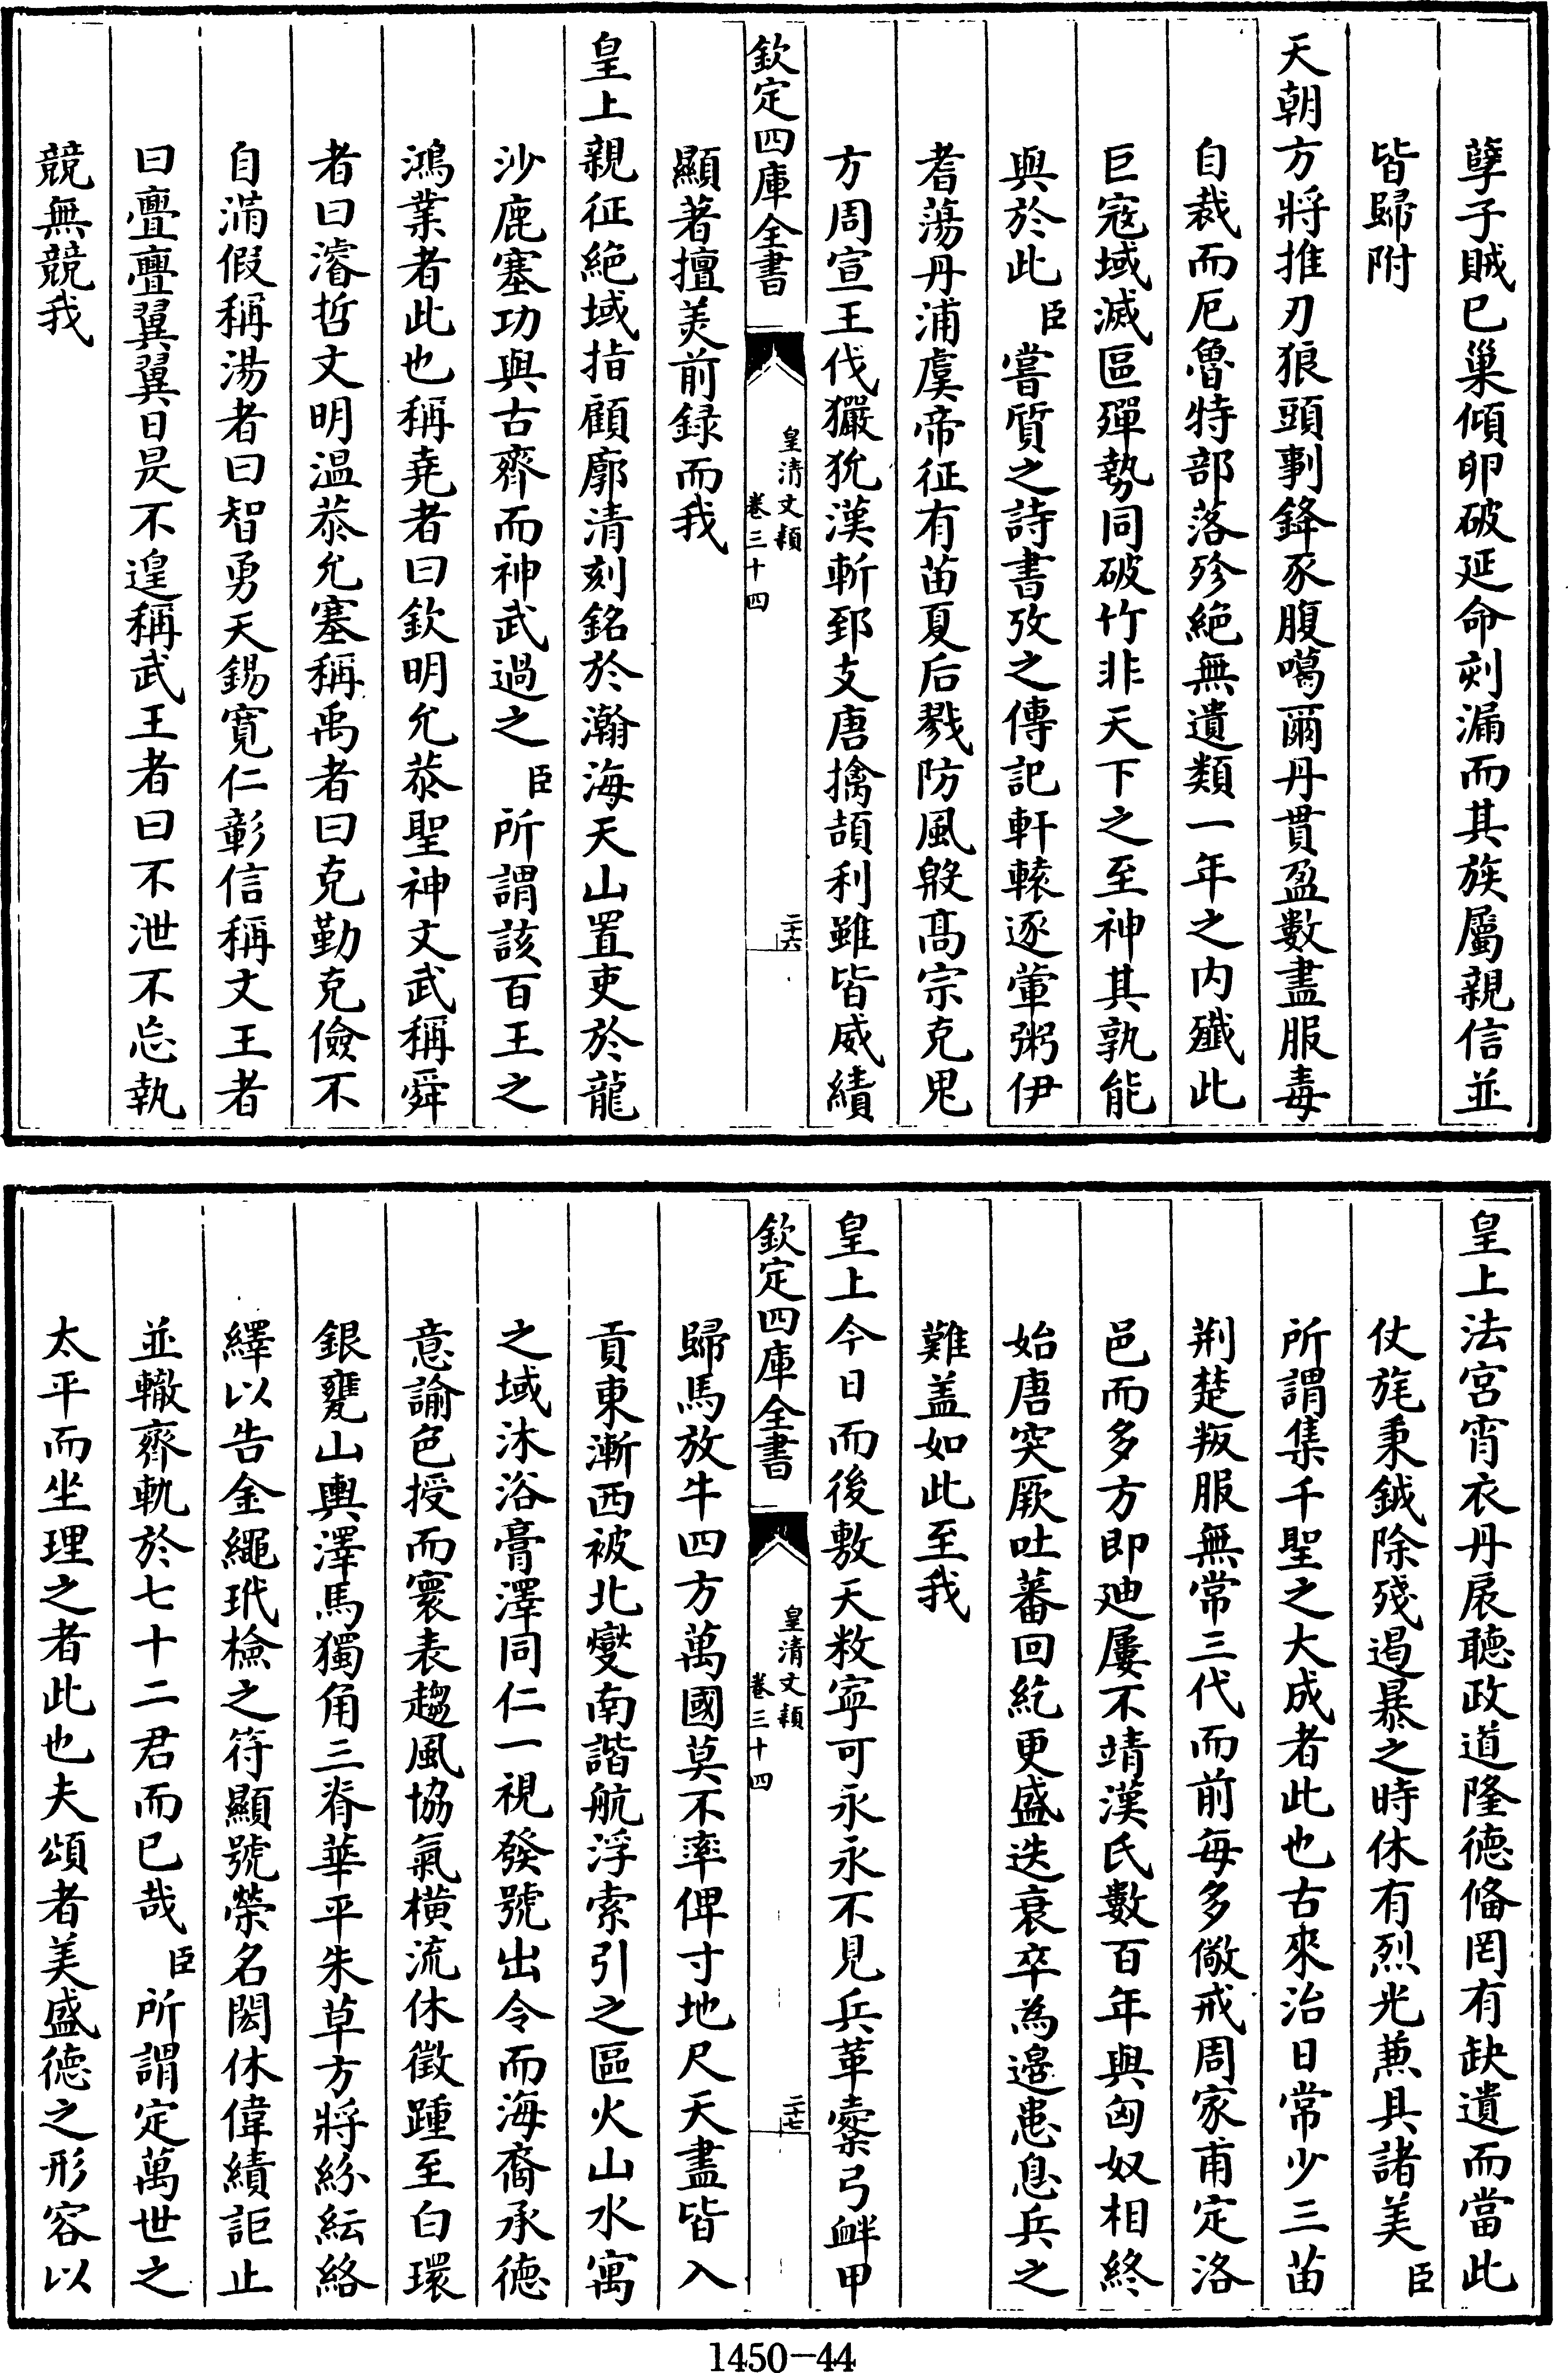 孽子賊巳巢傾卵破延命刻漏而其族屬親信並
皆歸附
天朝方將推刃狼頭剚鋒豕腹噶爾丹貫盈數盡服毒
自裁而厄魯特部落殄絶無遺類一年之内殱此
巨寇域滅區殫勢同破竹非天下之至神其孰能
與於此臣嘗質之詩書攷之傳記軒轅逐葷粥伊
耆蕩丹浦虞帝征有苗夏后戮防風殷髙宗克鬼
方周宣王伐玁狁漢斬郅支唐擒頡利雖皆威績
欽定四庫全書
皇清文頴
卷三十四
二十六
顯著擅美前録而我
皇上親征絶域指顧廓清刻銘於瀚海天山置吏於龍
沙鹿塞功與古齊而神武過之臣所謂該百王之
鴻業者此也稱堯者曰欽明允恭聖神文武稱舜
者曰濬哲文明温恭允塞稱禹者曰克勤克儉不
自滿假稱湯者曰智勇天錫寛仁彰信稱文王者
曰亹亹翼翼日昃不遑稱武王者曰不泄不忘執
競無競我
皇上法宫宵衣丹扆聽政道隆德備罔有缺遺而當此
仗旄秉鉞除殘遏暴之時休有烈光兼具諸美臣
所謂集千聖之大成者此也古來治日常少三苗
荆楚叛服無常三代而前每多儆戒周家甫定洛
邑而多方即廸屢不靖漢氏數百年與匈奴相終
始唐突厥吐蕃回紇更盛迭衰卒為邊患息兵之
難盖如此至我
皇上今日而後敷天敉寜可永永不見兵革櫜弓衅甲
欽定四庫全書
皇清文頴
卷三十四
二十七
歸馬放牛四方萬國莫不率俾寸地尺天盡皆入
貢東漸西被北燮南諧航浮索引之區火山水寓
之域沐浴膏澤同仁一視發號出令而海裔承德
意諭色授而寰表趨風協氣横流休徴踵至白環
銀甕山輿澤馬獨角三脊華平朱草方將紛紜絡
繹以告金繩玳檢之符顯號榮名閎休偉績詎止
並轍齊軌於七十二君而已哉臣所謂定萬世之
太平而坐理之者此也夫頌者美盛德之形容以
1450-44